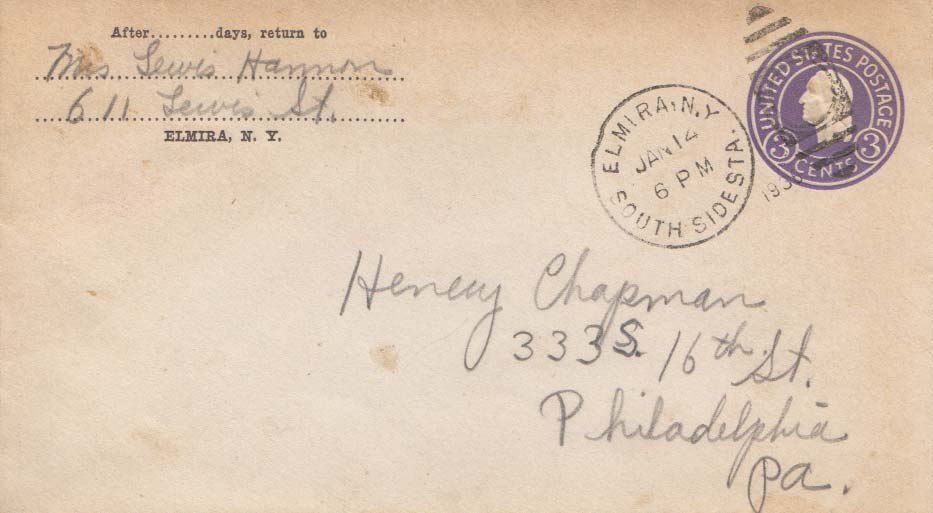 After.........days, return to
Mrs Lewis Hannon
611 Lewis St.
ELMIRA, N. Y.
ELMIRA, N.Y.
JAN 14
6 PM
SOUTH SIDE STA.
UNITED STATES POSTAGE
3 CENTS 3
Henery Chapman
333 S. 16th St.
Philadelphia
Pa.